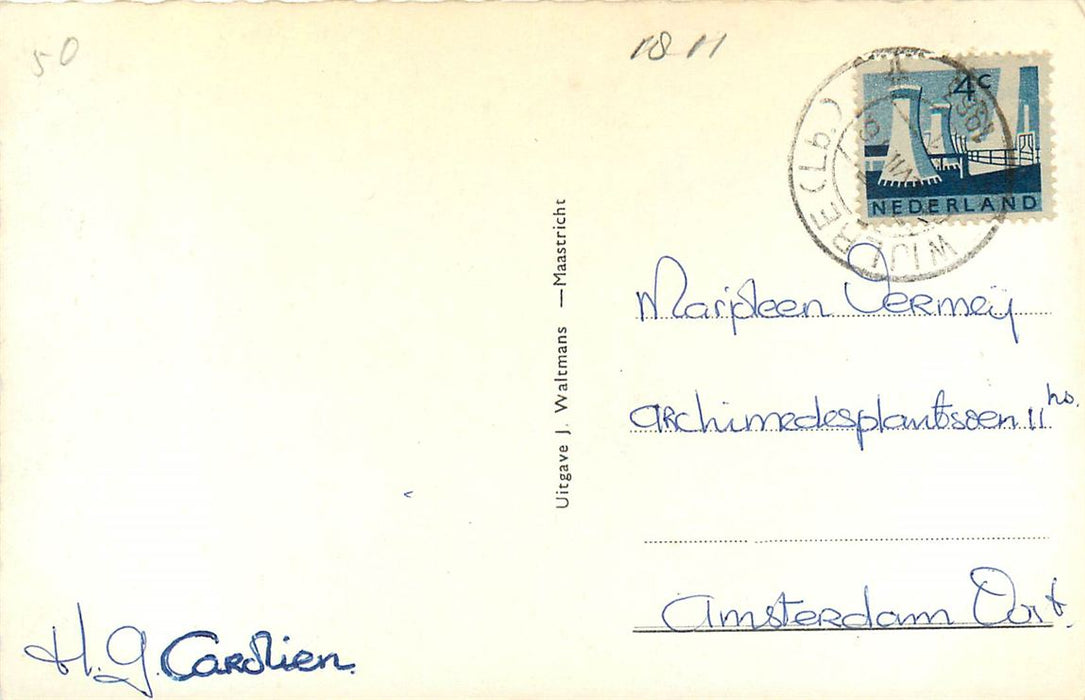 50
18 11
4c
NEDERLAND
WIJLRE (Lb.)
Uitgave J. Waltmans — Maastricht
Marjoleen Vermeij
Archimedesplantsoen 11 hs.
Amsterdam Oost.
H. G. Carolien.